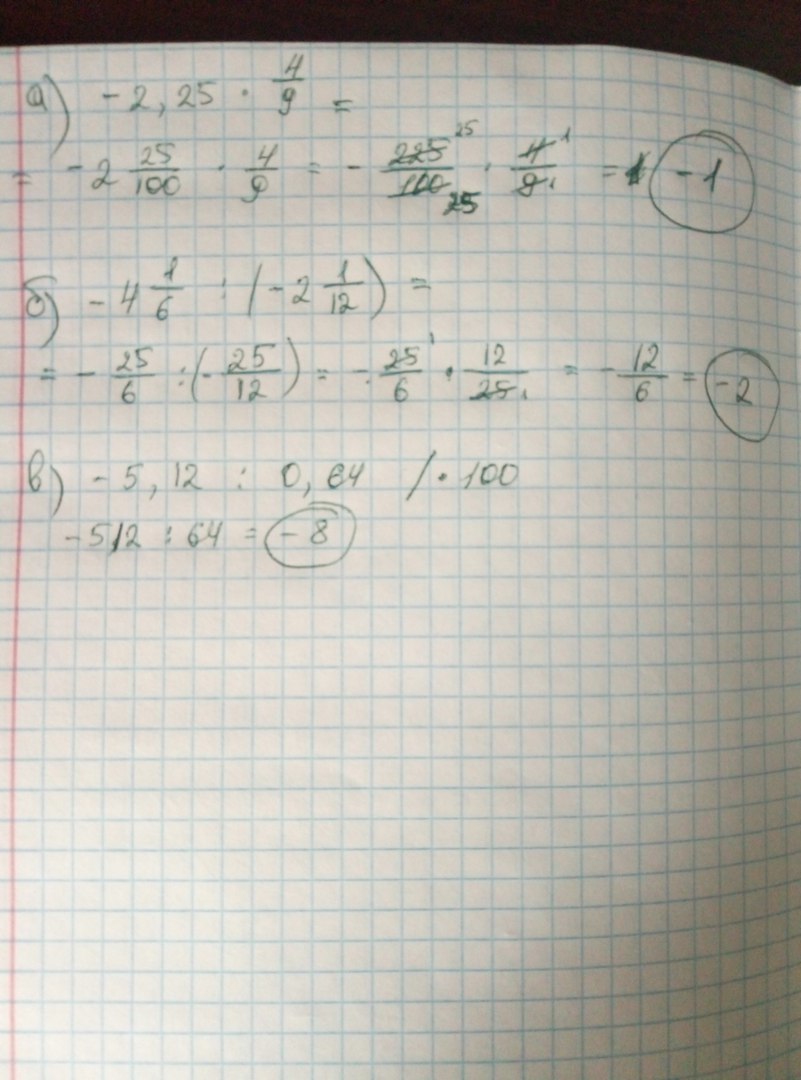 а) -2,25 · 4/9 =
= -2 25/100 · 4/9 = - 225 25/100 25 · 4 1/9 1 = -1
б) -4 1/6 : (-2 1/12) =
= - 25/6 : (- 25/12) = - 25 1/6 · 12/25 1 = - 12/6 = -2
в) -5,12 : 0,64 / · 100
-512 : 64 = -8